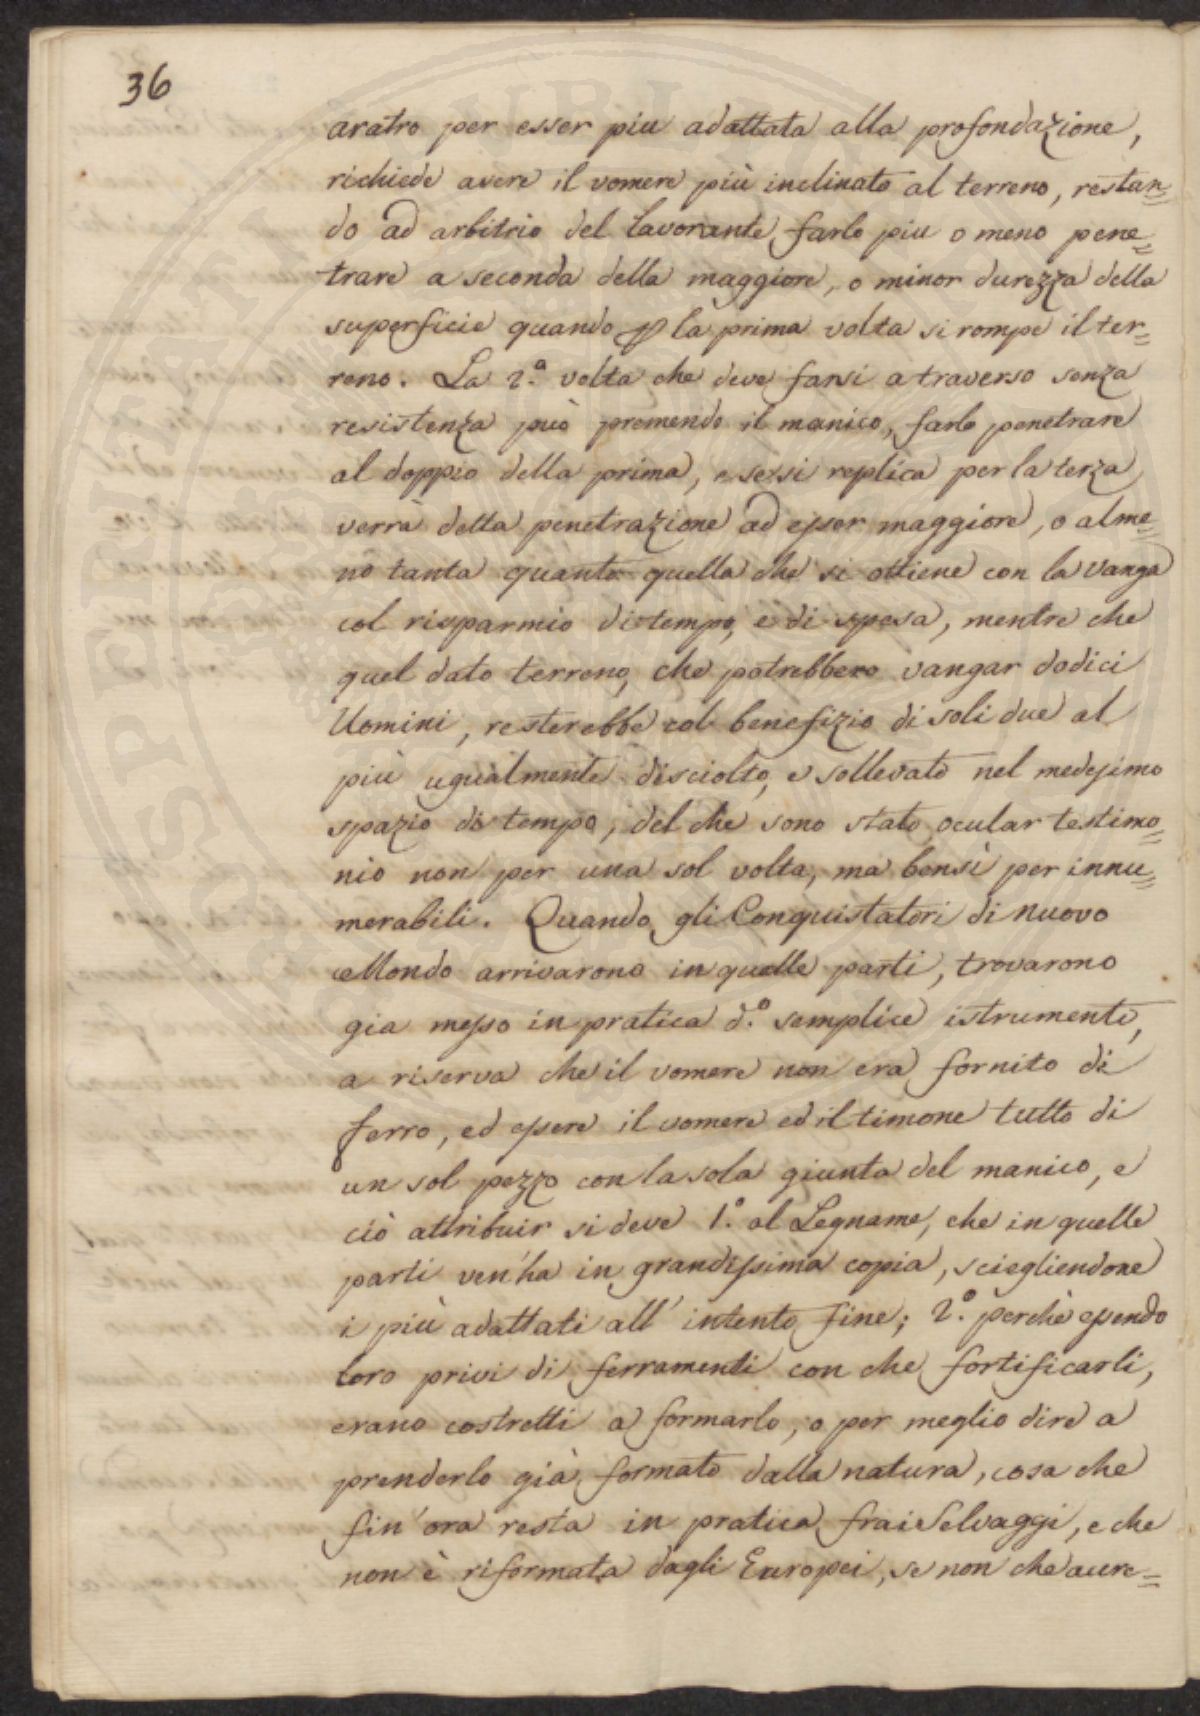 36
aratro per esser piu adattata alla profondazione,
richiede avere il vomere più inclinato al terreno, restan=
do ad arbitrio del lavorante farlo piu o meno pene=
trare a seconda della maggiore, o minor durezza della
superficie quando p la prima volta si rompe il ter=
reno. La 2.ª volta che deve farsi a traverso senza
resistenza può premendo il manico, farlo penetrare
al doppio della prima, e se si replica per la terza
verrà detta penetrazione ad esser maggiore, o alme=
no tanta quanto quella che si ottiene con la vanga
col risparmio di tempo, e di spesa, mentre che
quel dato terreno, che potrebbero vangar dodici
Uomini, resterebbe col benefizio di soli due al
più ugualmente disciolto, e sollevato nel medesimo
spazio di tempo, del che sono stato ocular testimo=
nio non per una sol volta, ma bensì per innu=
merabili. Quando gli Conquistatori di nuovo
Mondo arrivarono in quelle parti, trovarono
gia messo in pratica d.º semplice istrumento,
a riserva che il vomere non era fornito di
ferro, ed essere il vomere ed il timone tutto di
un sol pezzo con la sola giunta del manico, e
ciò attribuir si deve 1.º al Legname, che in quelle
parti ven'ha in grandissima copia, sciegliendone
i più adattati all' intento fine; 2.º perchè essendo
loro privi di ferramenti con che fortificarli,
erano costretti a formarlo, o per meglio dire a
prenderlo già formato dalla natura, cosa che
fin' ora resta in pratica frai Selvaggi, e che
non è riformata dagli Europei, se non che avere=